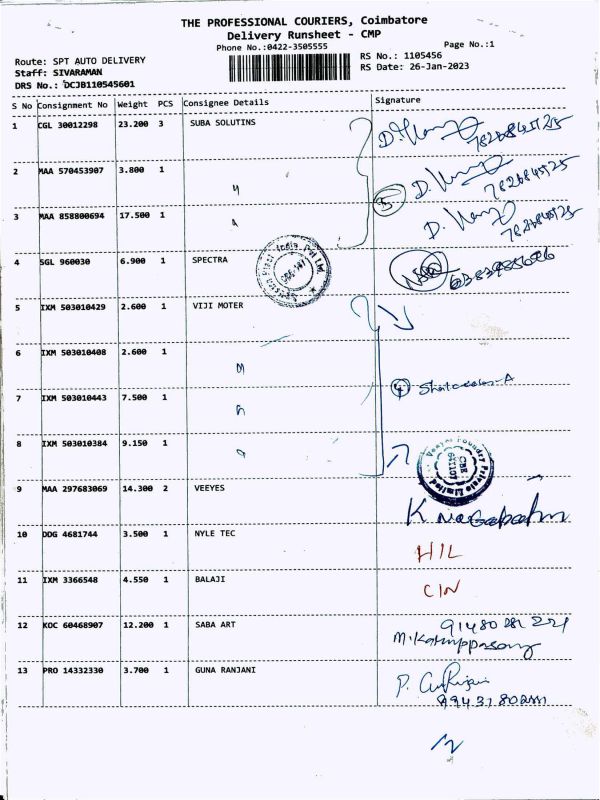 THE PROFESSIONAL COURIERS, Coimbatore
Delivery Runsheet - CMP
Phone No.:0422-3505555 Page No.:1
Route: SPT AUTO DELIVERY RS No.: 1105456
Staff: SIVARAMAN RS Date: 26-Jan-2023
DRS No.: DCJB110545601
S No Consignment No Weight PCS Consignee Details Signature
1 CGL 30012298 23.200 3 SUBA SOLUTINS
2 MAA 570453907 3.800 1 "
3 MAA 858800694 17.500 1 "
4 SGL 960030 6.900 1 SPECTRA
5 IXM 503010429 2.600 1 VIJI MOTER
6 IXM 503010408 2.600 1 "
7 IXM 503010443 7.500 1 "
8 IXM 503010384 9.150 1 "
4
9 MAA 297683069 14.300 2 VEEYES
10 DDG 4681744 3.500 1 NYLE TEC H/L
11 IXM 3366548 4.550 1 BALAJI C/N
12 KOC 60468907 12.200 1 SABA ART
13 PRO 14332330 3.700 1 GUNA RANJANI